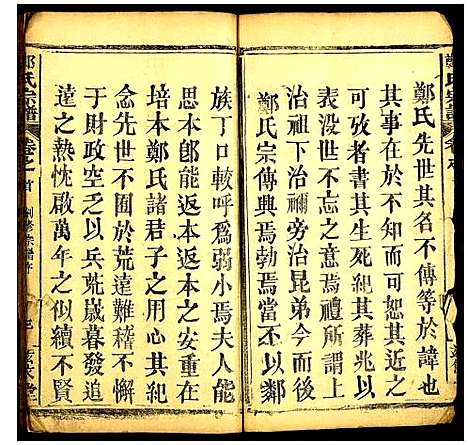 鄭氏先世其名不傳等於諱也
其事在於不可知恕其近之
可攷者書其生死紀其葬兆以
表没世不忘之意焉禮所謂上
治祖下治禰旁治昆弟今而後
鄭氏宗傳興焉勃焉當不以鄰
族丁口較呼爲弱小焉夫人能
思本卽能返本返本安本斯能
培本鄭氏諸君子之用心其卽
念先世不囿於荒遠難稽不懈
于財政空乏以兵荒歲暮發追
遠之熱忱啟萬年之似續不賢
鄭氏宗譜
卷之首